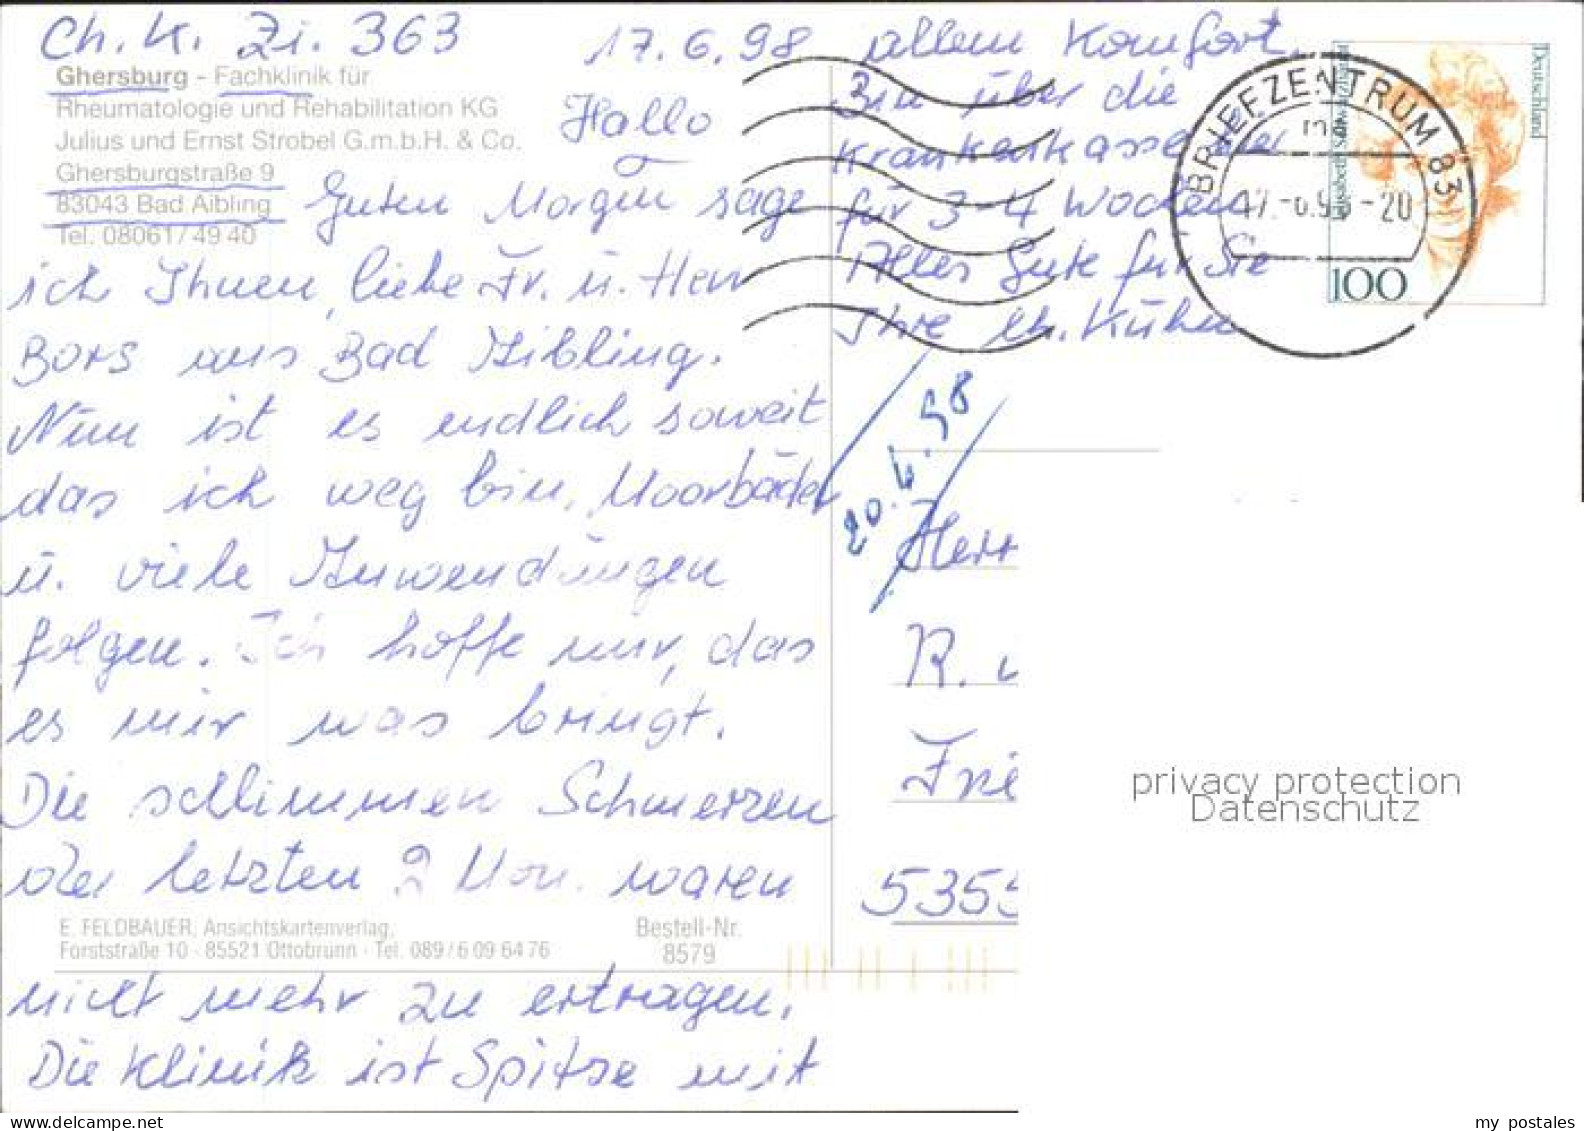 Ch. K. Zi. 363
Ghersburg - Fachklinik für
Rheumatologie und Rehabilitation KG
Julius und Ernst Strobel G.m.b.H. & Co.
Ghersburgstraße 9
83043 Bad Aibling
Tel. 08061/49 40
17.6.98
Hallo
Guten Morgen sage
ich Ihnen, liebe Fr. u. Herr
Bors aus Bad Aibling.
Nun ist es endlich soweit
das ich weg bin, Moorbäder
u. viele Anwendungen
folgen. Ich hoffe nur, das
es mir was bringt.
Die schlimmen Schmerzen
der letzten 2 Mon. waren
E. FELDBAUER, Ansichtskartenverlag,
Forststraße 10 - 85521 Ottobrunn · Tel. 089/6 09 64 76
Bestell-Nr.
8579
nicht mehr zu ertragen.
Die Klinik ist Spitze mit
allem Komfort.
Bin über die
Krankenkasse hier
für 3-4 Wochen
Alles Gute für Sie
Ihre Ch. Kühn
20.6.98
BRIEFZENTRUM 83
17.-6.98-20
Deutschland
Elisabeth Schwarzhaupt
100
Herr
R. u
Frie
5355
privacy protection
Datenschutz
www.delcampe.net
my_postales